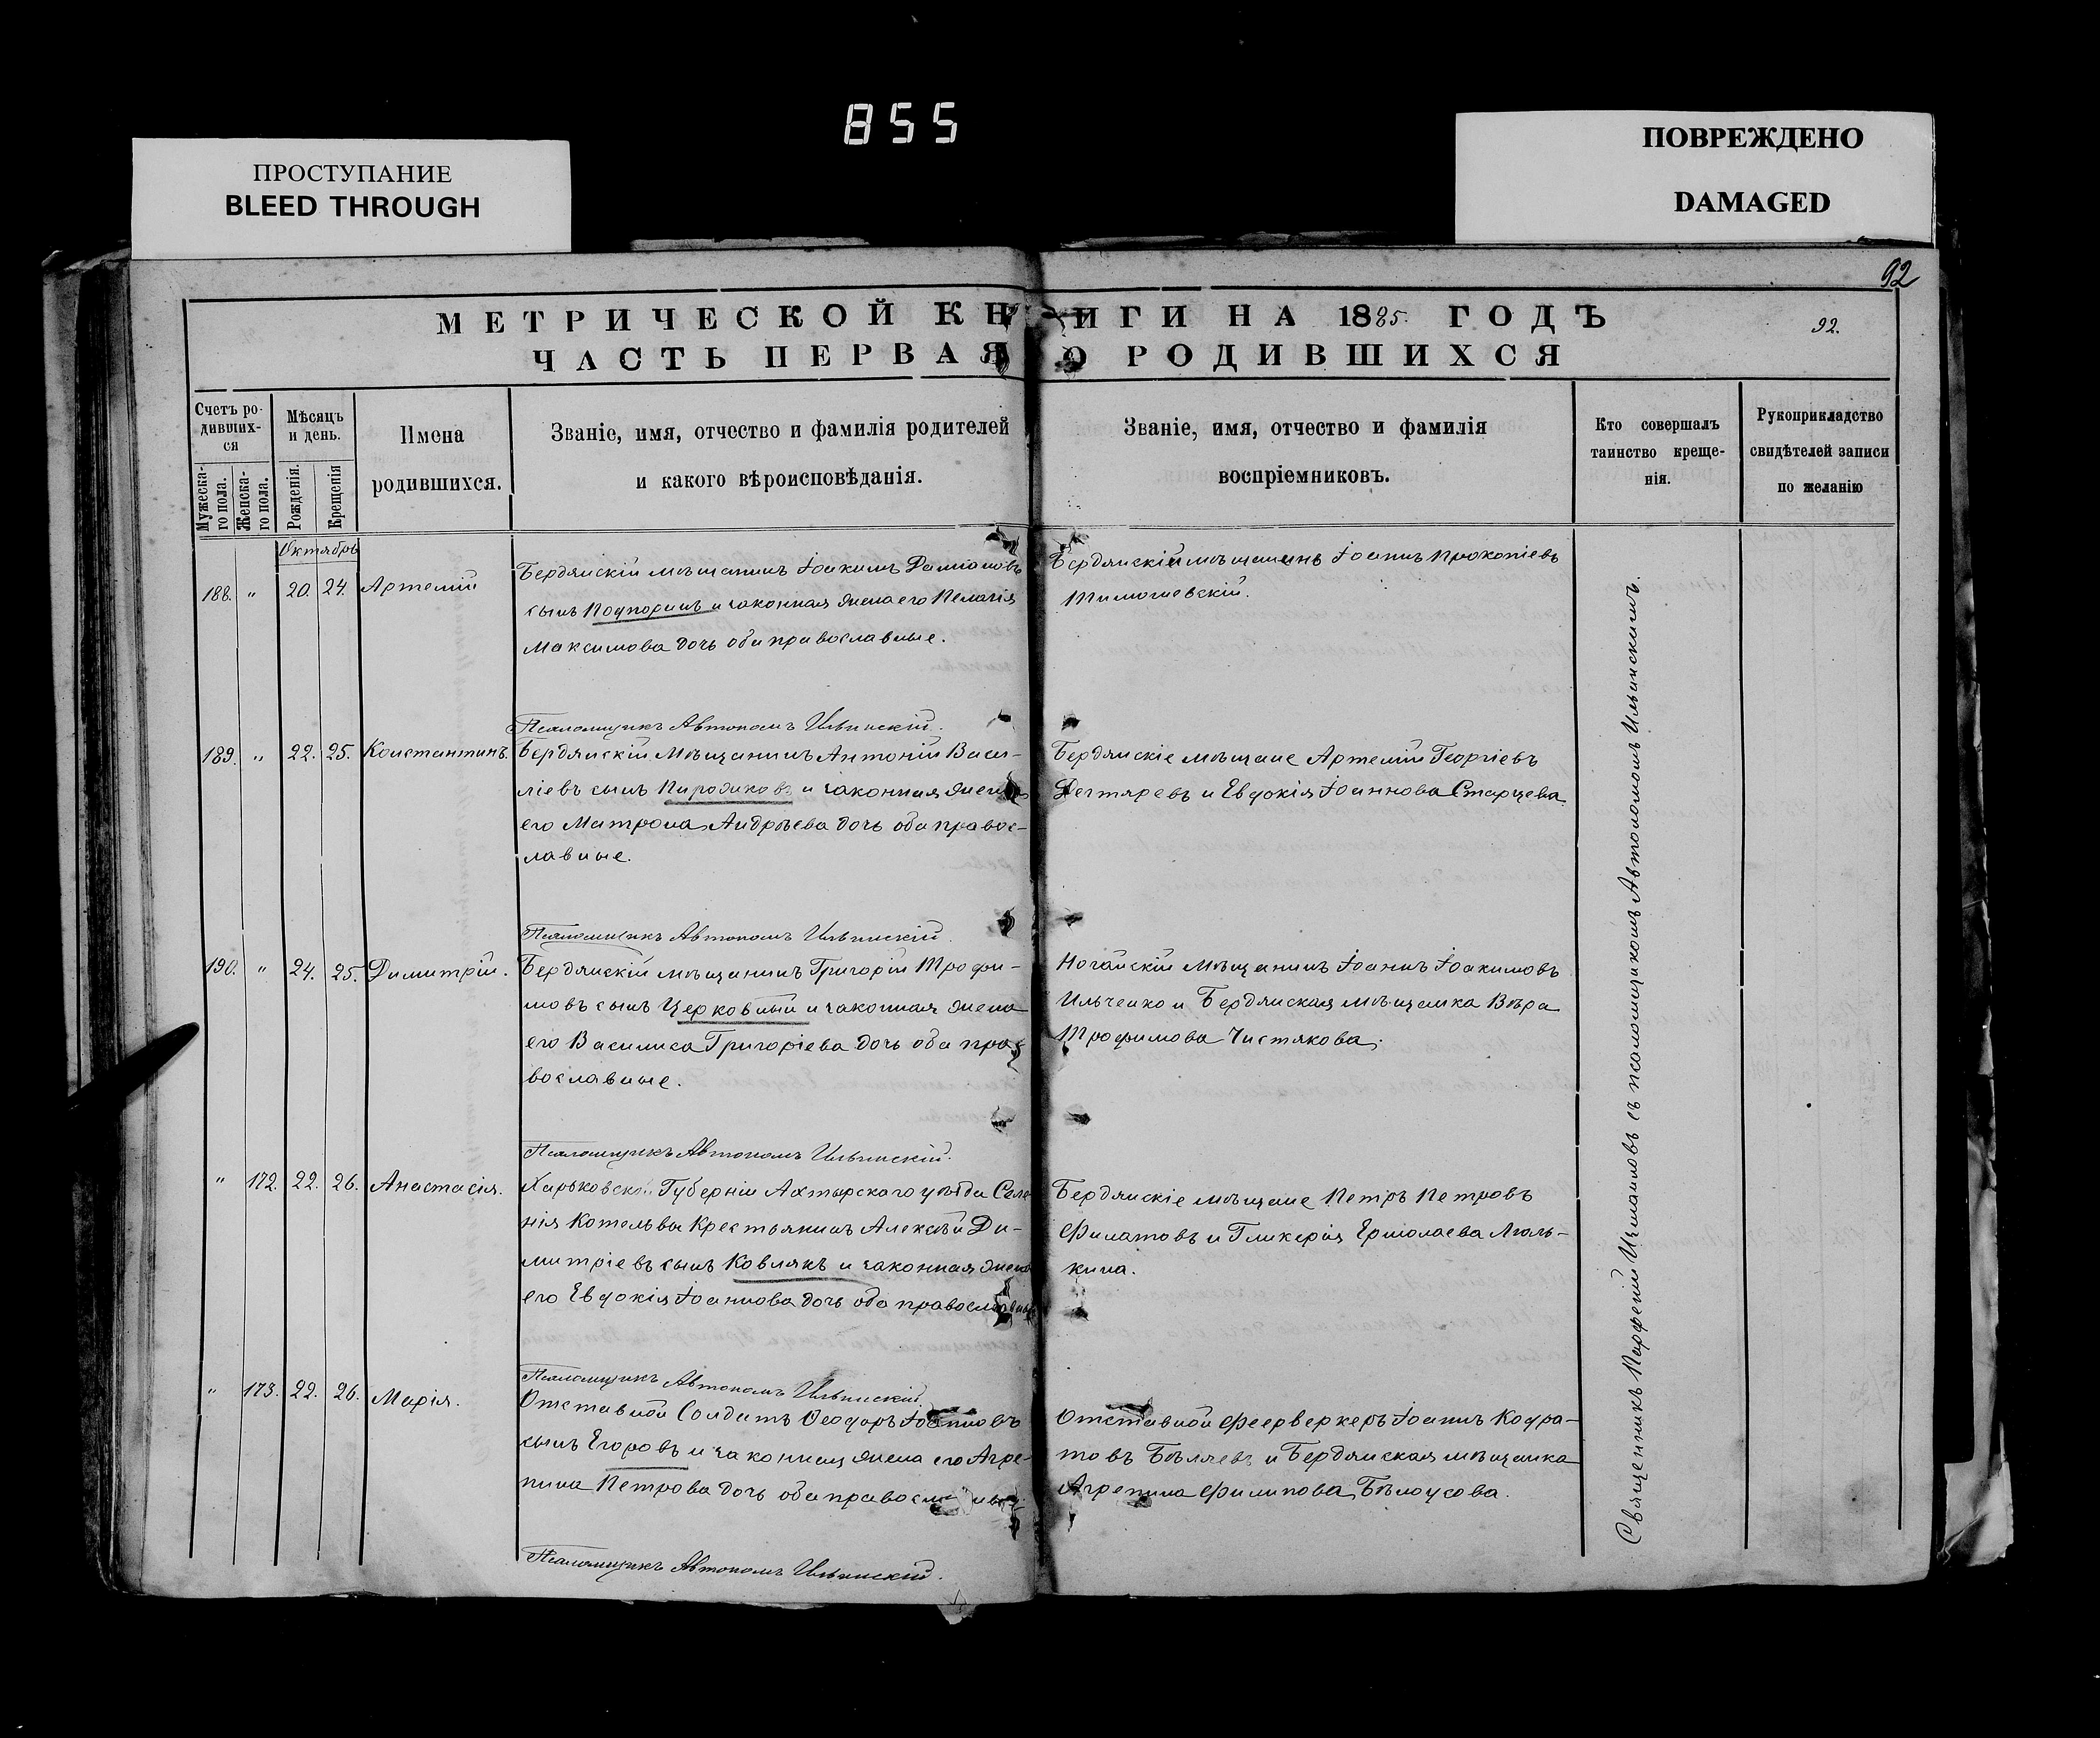 855
ПРОСТУПАНИЕ
BLEED THROUGH
ПОВРЕЖДЕНО
DAMAGED
92
МЕТРИЧЕСКОЙ КНИГИ НА 1885. ГОДЪ
92.
ЧАСТЬ ПЕРВАЯ О РОДИВШИХСЯ
Счетъ ро-
дивших-
ся
Мужеска-
го пола.
Женска-
го пола.
Мѣсяцъ
и день.
Рожденія.
Крещенія
Имена
родившихся.
Званіе, имя, отчество и фамилія родителей
и какого вѣроисповѣданія.
Званіе, имя, отчество и фамилія
воспріемниковъ.
Кто совершалъ
таинство креще-
нія.
Рукоприкладство
свидѣтелей записи
по желанію
Октябрь
188. " 20. 24. Артемій
Бердянскій мѣщанинъ Іоакимъ Даміановъ
сынъ Подпоринъ и законная жена его Пелагія
Максимова дочь оба православные.
Бердянскій мѣщанинъ Іоаннъ Прокопіевъ
Тимошевскій.
Псаломщикъ Автономъ Ильинскій.
189. " 22. 25. Константинъ.
Бердянскій Мѣщанинъ Антоній Васи-
ліевъ сынъ Пирожковъ и законная жена
его Матрона Андрѣева дочь оба правос-
лавные.
Бердянскіе мѣщане Артемій Георгіевъ
Дегтяревъ и Евдокія Іоаннова Старцева.
Псаломщикъ Автономъ Ильинскій.
190. " 24. 25. Димитрій.
Бердянскій мѣщанинъ Григорій Трофи-
мовъ сынъ Церковный и законная жена
его Василиса Григоріева дочь оба пра-
вославные.
Ногайскій Мѣщанинъ Іоаннъ Іоакимовъ
Ильченко и Бердянская мѣщанка Вѣра
Трофимова Чистякова.
Псаломщикъ Автономъ Ильинскій.
" 172. 22. 26. Анастасія.
Харьковской Губерніи Ахтырскаго уѣзда Селе
нія Котельвы Крестьянинъ Алексѣй Ди-
митріевъ сынъ Ковлякъ и законная жена
его Евдокія Іоаннова дочь оба православные
Бердянскіе мѣщане Петръ Петровъ
Филатовъ и Гликерія Ермолаева Люль-
кина.
Псаломщикъ Автономъ Ильинскій.
" 173. 22. 26. Марія.
Отставной Солдатъ Ѳеодоръ Іоанновъ
сынъ Егоровъ и законная жена его Агре-
пина Петрова дочь оба православные.
Отставной Феерверкеръ Іоаннъ Кодра-
товъ Бѣляевъ и Бердянская мѣщанка
Агрепина Филипова Бѣлоусова.
Псаломщикъ Автономъ Ильинскій.
Священникъ Парфеній Изманловъ съ псаломщикомъ Автономомъ Ильинскимъ.